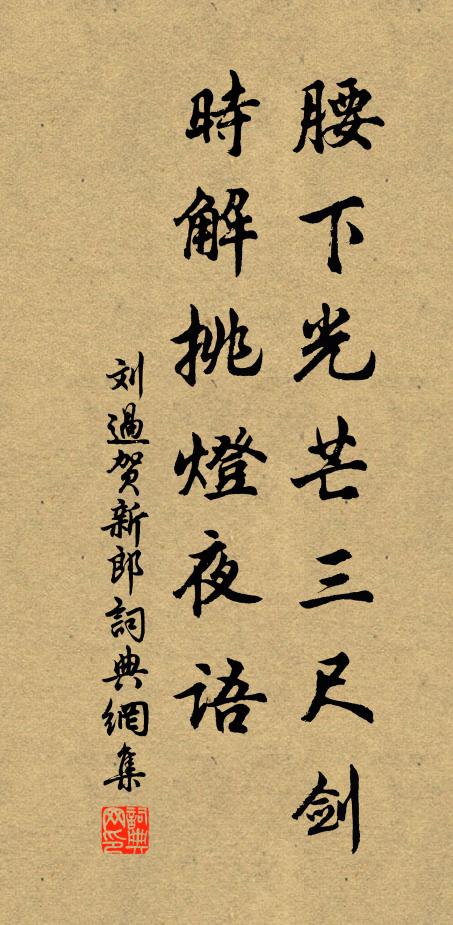 腰下光芒三尺剑
時解挑燈夜语
刘過贺新郎詞典網集
詞典网印